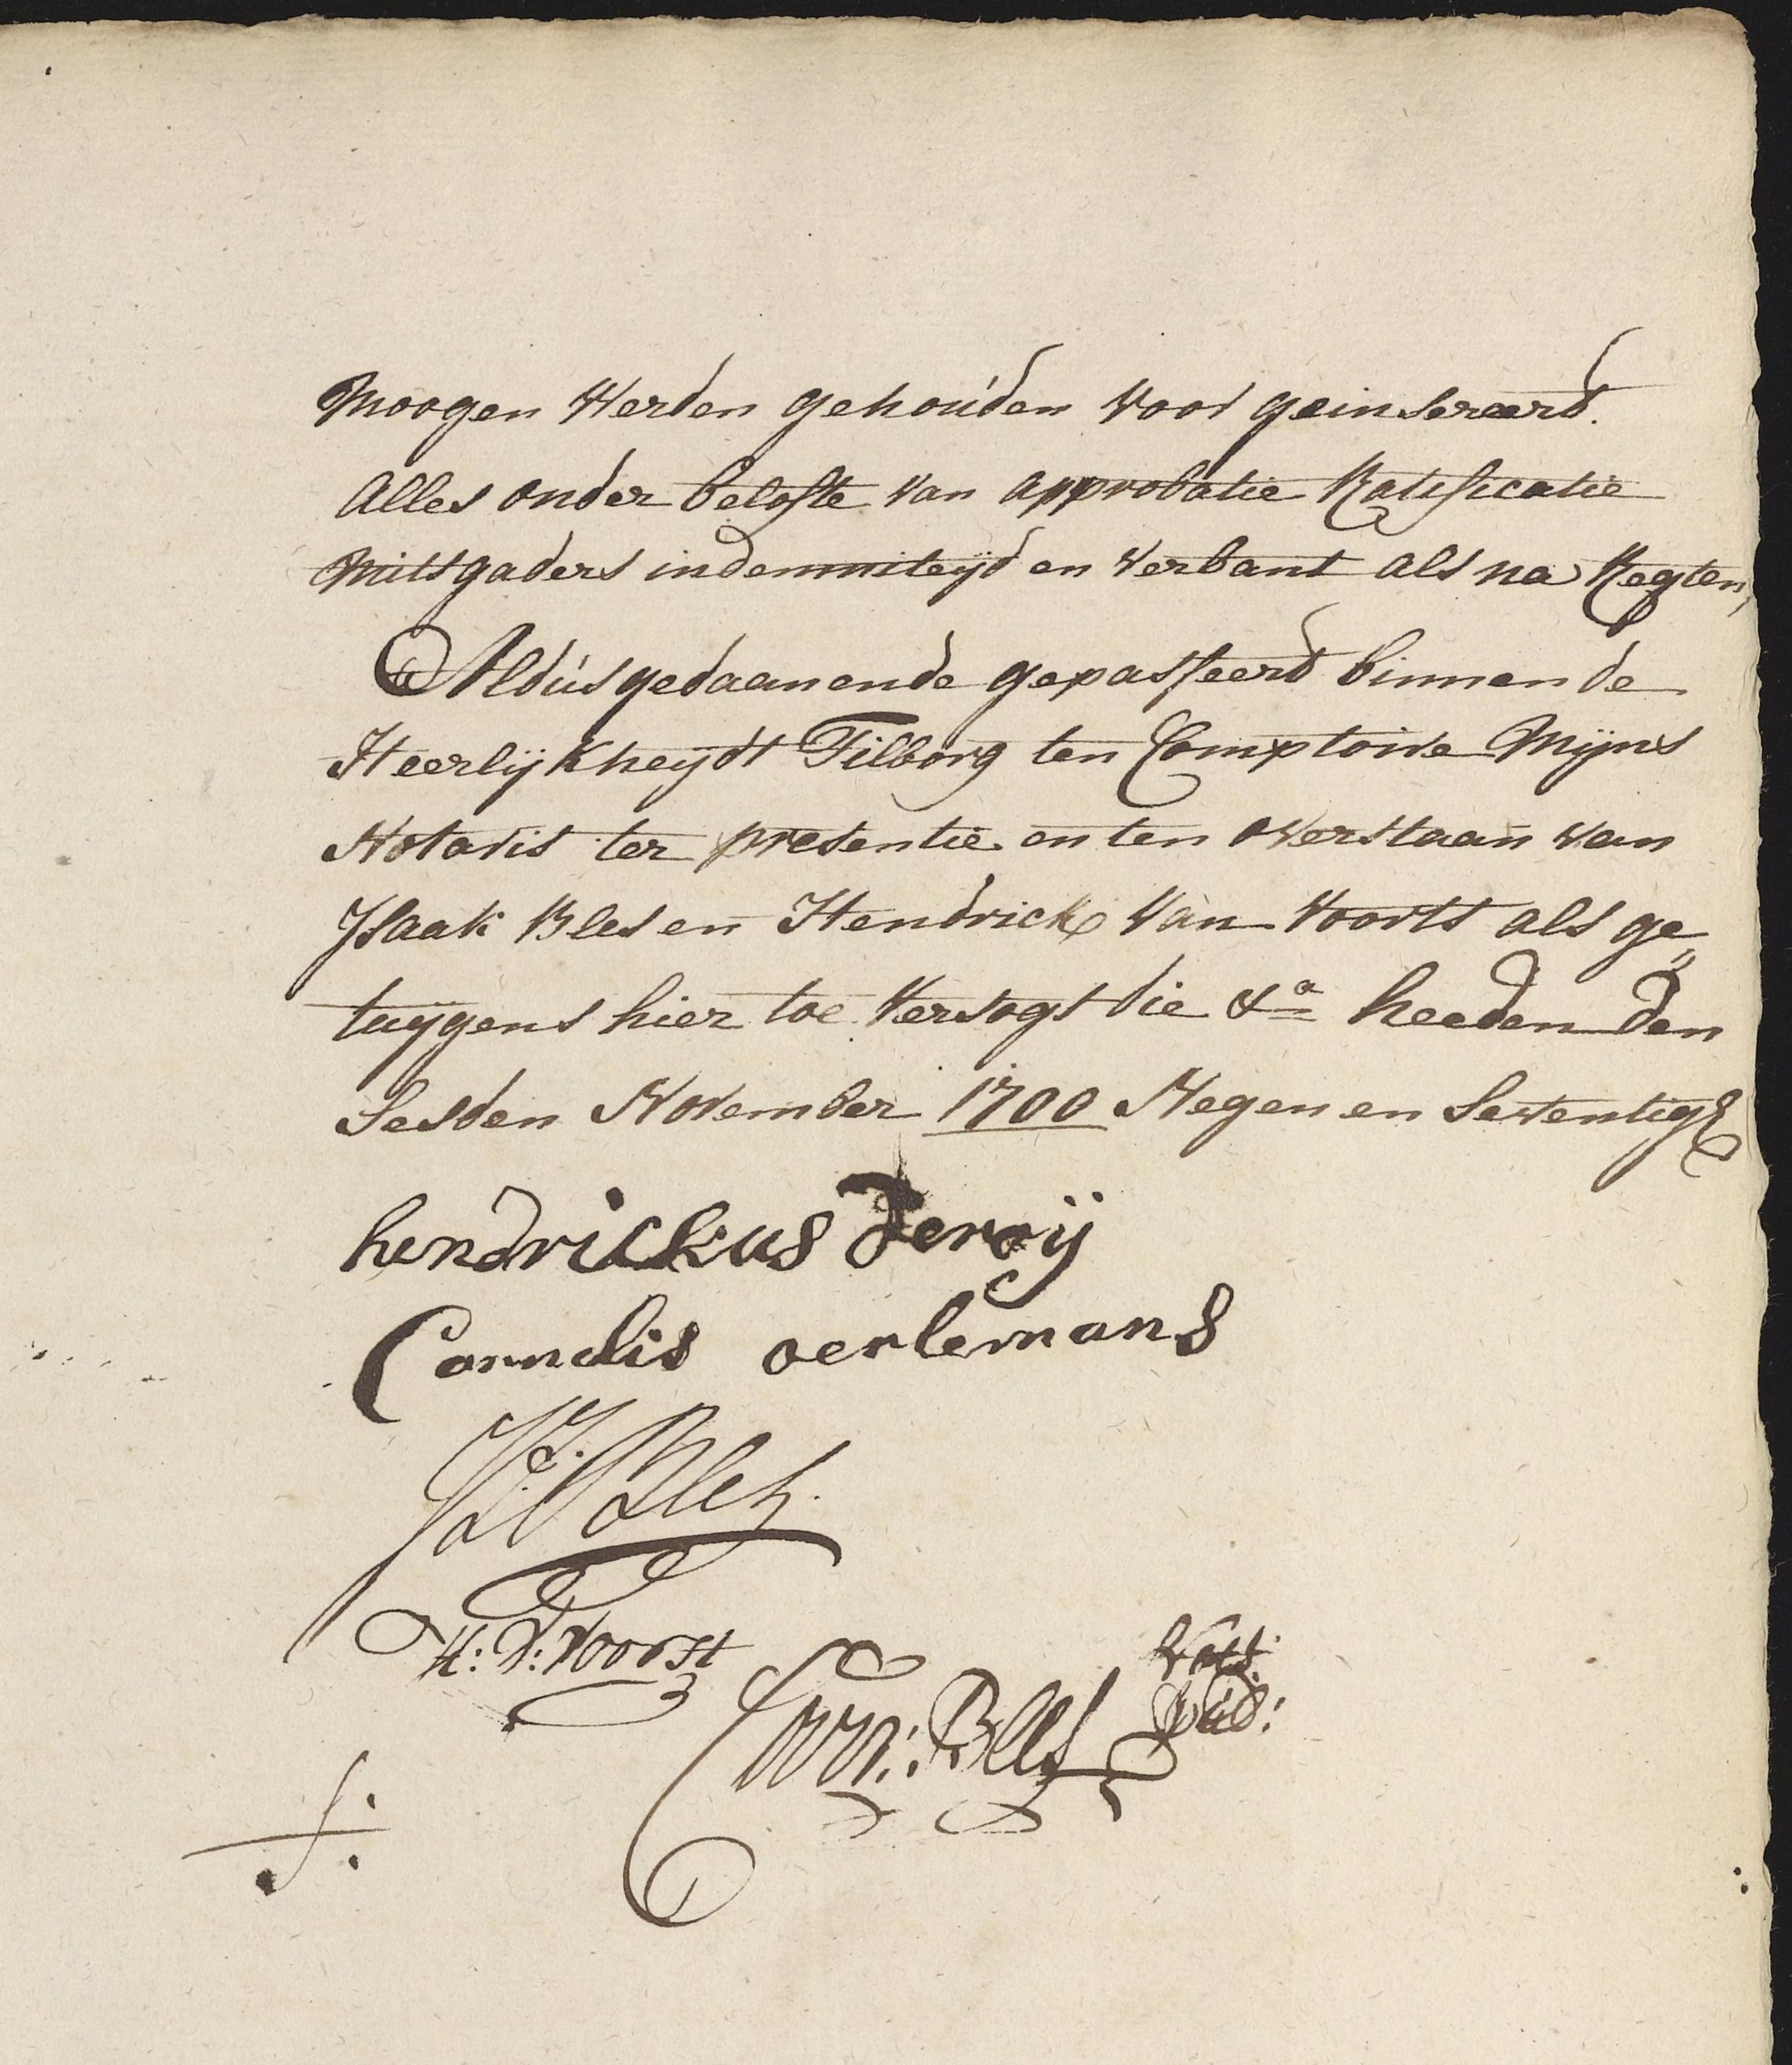 moogen werden gehouden voor geinsereerd.
Alles onder belofte van approbatie Ratificatie
mitsgaders indemniteijd en verbant als na Regten,
Aldus gedaan ende gepasseerd binnen de
Heerlijkheijdt Tilborg ten Comptoire mijns
Notaris ter presentie en ten overstaan van
Isaak Bles en Hendrick van Voorts als ge„
tuijgens hier toe versogt die &a heeden den
Sesden November 1700 Negen en Seventig
hendrickus de roij
Cornelis oerlemans
Bles.
H: V: Voorst
Corn: Bles Nots
Pub: